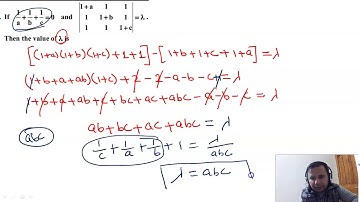 . If 1/a + 1/b + 1/c = 0 and |1+a 1 1|
|1 1+b 1| = λ .
|1 1 1+c|
Then the value of λ is
[(1+a)(1+b)(1+c)+1+1] - [1+b+1+c+1+a] = λ
(1+b+a+ab)(1+c) + 2 - 2 - a - b - c + = λ
1+b+a+ab+c+bc+ac+abc-a-b-c = λ
abc
ab+bc+ac+abc = λ
1/c + 1/a + 1/b + 1 = λ/abc
λ = abc